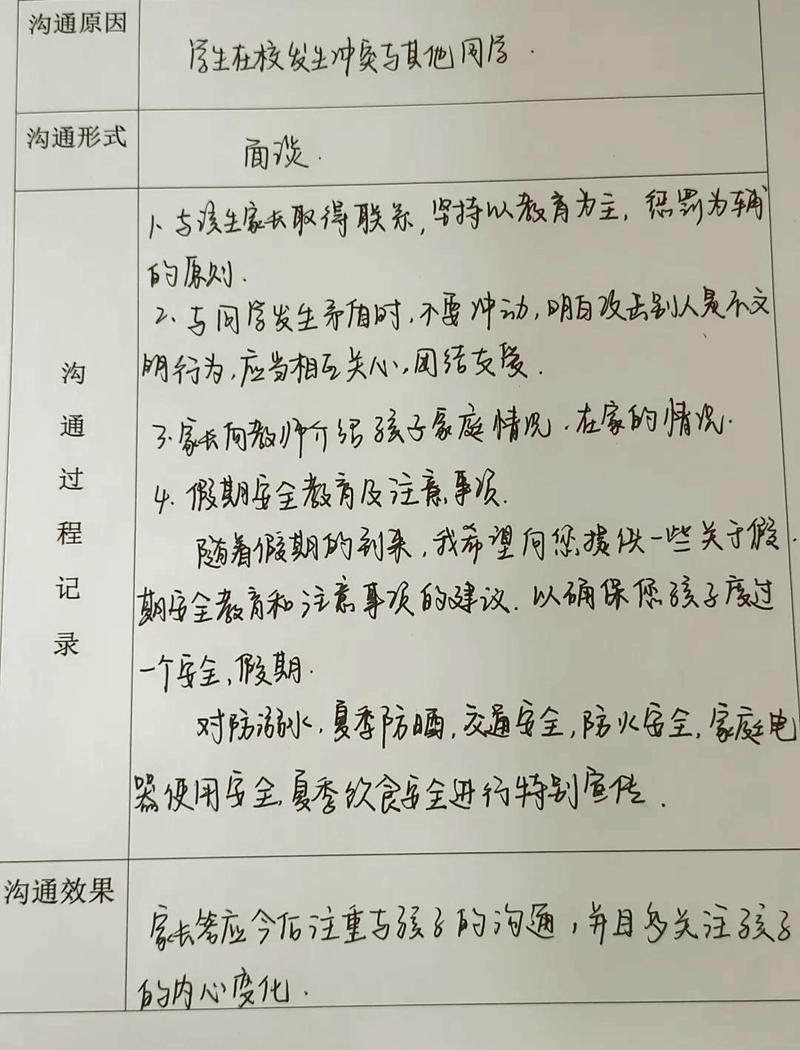 沟通原因
学生在校发生冲突与其他同学.
沟通形式
面谈.
沟通过程记录
1、与该生家长取得联系,坚持以教育为主,惩罚为辅
的原则.
2、与同学发生矛盾时,不要冲动,明白攻击别人是不文
明行为,应当相互关心,团结友爱.
3、家长向教师介绍孩子家庭情况.在家的情况.
4、假期安全教育及注意事项.
随着假期的到来,我希望向您提供一些关于假
期安全教育和注意事项的建议.以确保您孩子度过
一个安全,假期.
对防溺水,夏季防晒,交通安全,防火安全,家庭电
器使用安全,夏季饮食安全进行特别宣传.
沟通效果
家长答应今后注重与孩子的沟通,并且多关注孩子
的内心变化.